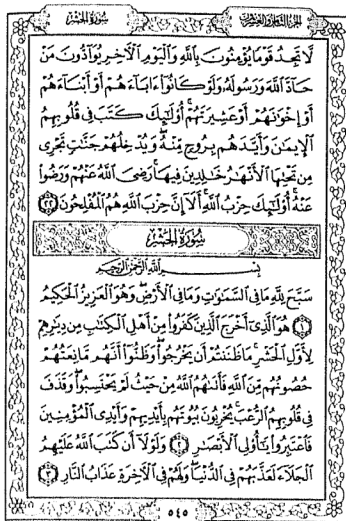 الجزء الثامن والعشرون سورة الحشر
لَّا تَجِدُ قَوْمًا يُؤْمِنُونَ بِاللَّهِ وَالْيَوْمِ الْآخِرِ يُوَادُّونَ مَنْ
حَادَّ اللَّهَ وَرَسُولَهُ وَلَوْ كَانُوا ءَابَاءَهُمْ أَوْ أَبْنَاءَهُمْ
أَوْ إِخْوَانَهُمْ أَوْ عَشِيرَتَهُمْ أُولَٰئِكَ كَتَبَ فِي قُلُوبِهِمُ
الْإِيمَانَ وَأَيَّدَهُم بِرُوحٍ مِّنْهُ وَيُدْخِلُهُمْ جَنَّاتٍ تَجْرِي
مِن تَحْتِهَا الْأَنْهَارُ خَالِدِينَ فِيهَا رَضِيَ اللَّهُ عَنْهُمْ وَرَضُوا
عَنْهُ أُولَٰئِكَ حِزْبُ اللَّهِ أَلَا إِنَّ حِزْبَ اللَّهِ هُمُ الْمُفْلِحُونَ ٢٢
سورة الحشر
بِسْمِ اللَّهِ الرَّحْمَٰنِ الرَّحِيمِ
سَبَّحَ لِلَّهِ مَا فِي السَّمَاوَاتِ وَمَا فِي الْأَرْضِ وَهُوَ الْعَزِيزُ الْحَكِيمُ
١ هُوَ الَّذِي أَخْرَجَ الَّذِينَ كَفَرُوا مِنْ أَهْلِ الْكِتَابِ مِن دِيَارِهِمْ
لِأَوَّلِ الْحَشْرِ مَا ظَنَنتُمْ أَن يَخْرُجُوا وَظَنُّوا أَنَّهُم مَّانِعَتُهُمْ
حُصُونُهُم مِّنَ اللَّهِ فَأَتَاهُمُ اللَّهُ مِنْ حَيْثُ لَمْ يَحْتَسِبُوا وَقَذَفَ
فِي قُلُوبِهِمُ الرُّعْبَ يُخْرِبُونَ بُيُوتَهُم بِأَيْدِيهِمْ وَأَيْدِي الْمُؤْمِنِينَ
فَاعْتَبِرُوا يَا أُولِي الْأَبْصَارِ ٢ وَلَوْلَا أَن كَتَبَ اللَّهُ عَلَيْهِمُ
الْجَلَاءَ لَعَذَّبَهُمْ فِي الدُّنْيَا وَلَهُمْ فِي الْآخِرَةِ عَذَابُ النَّارِ ٣
٥٤٥